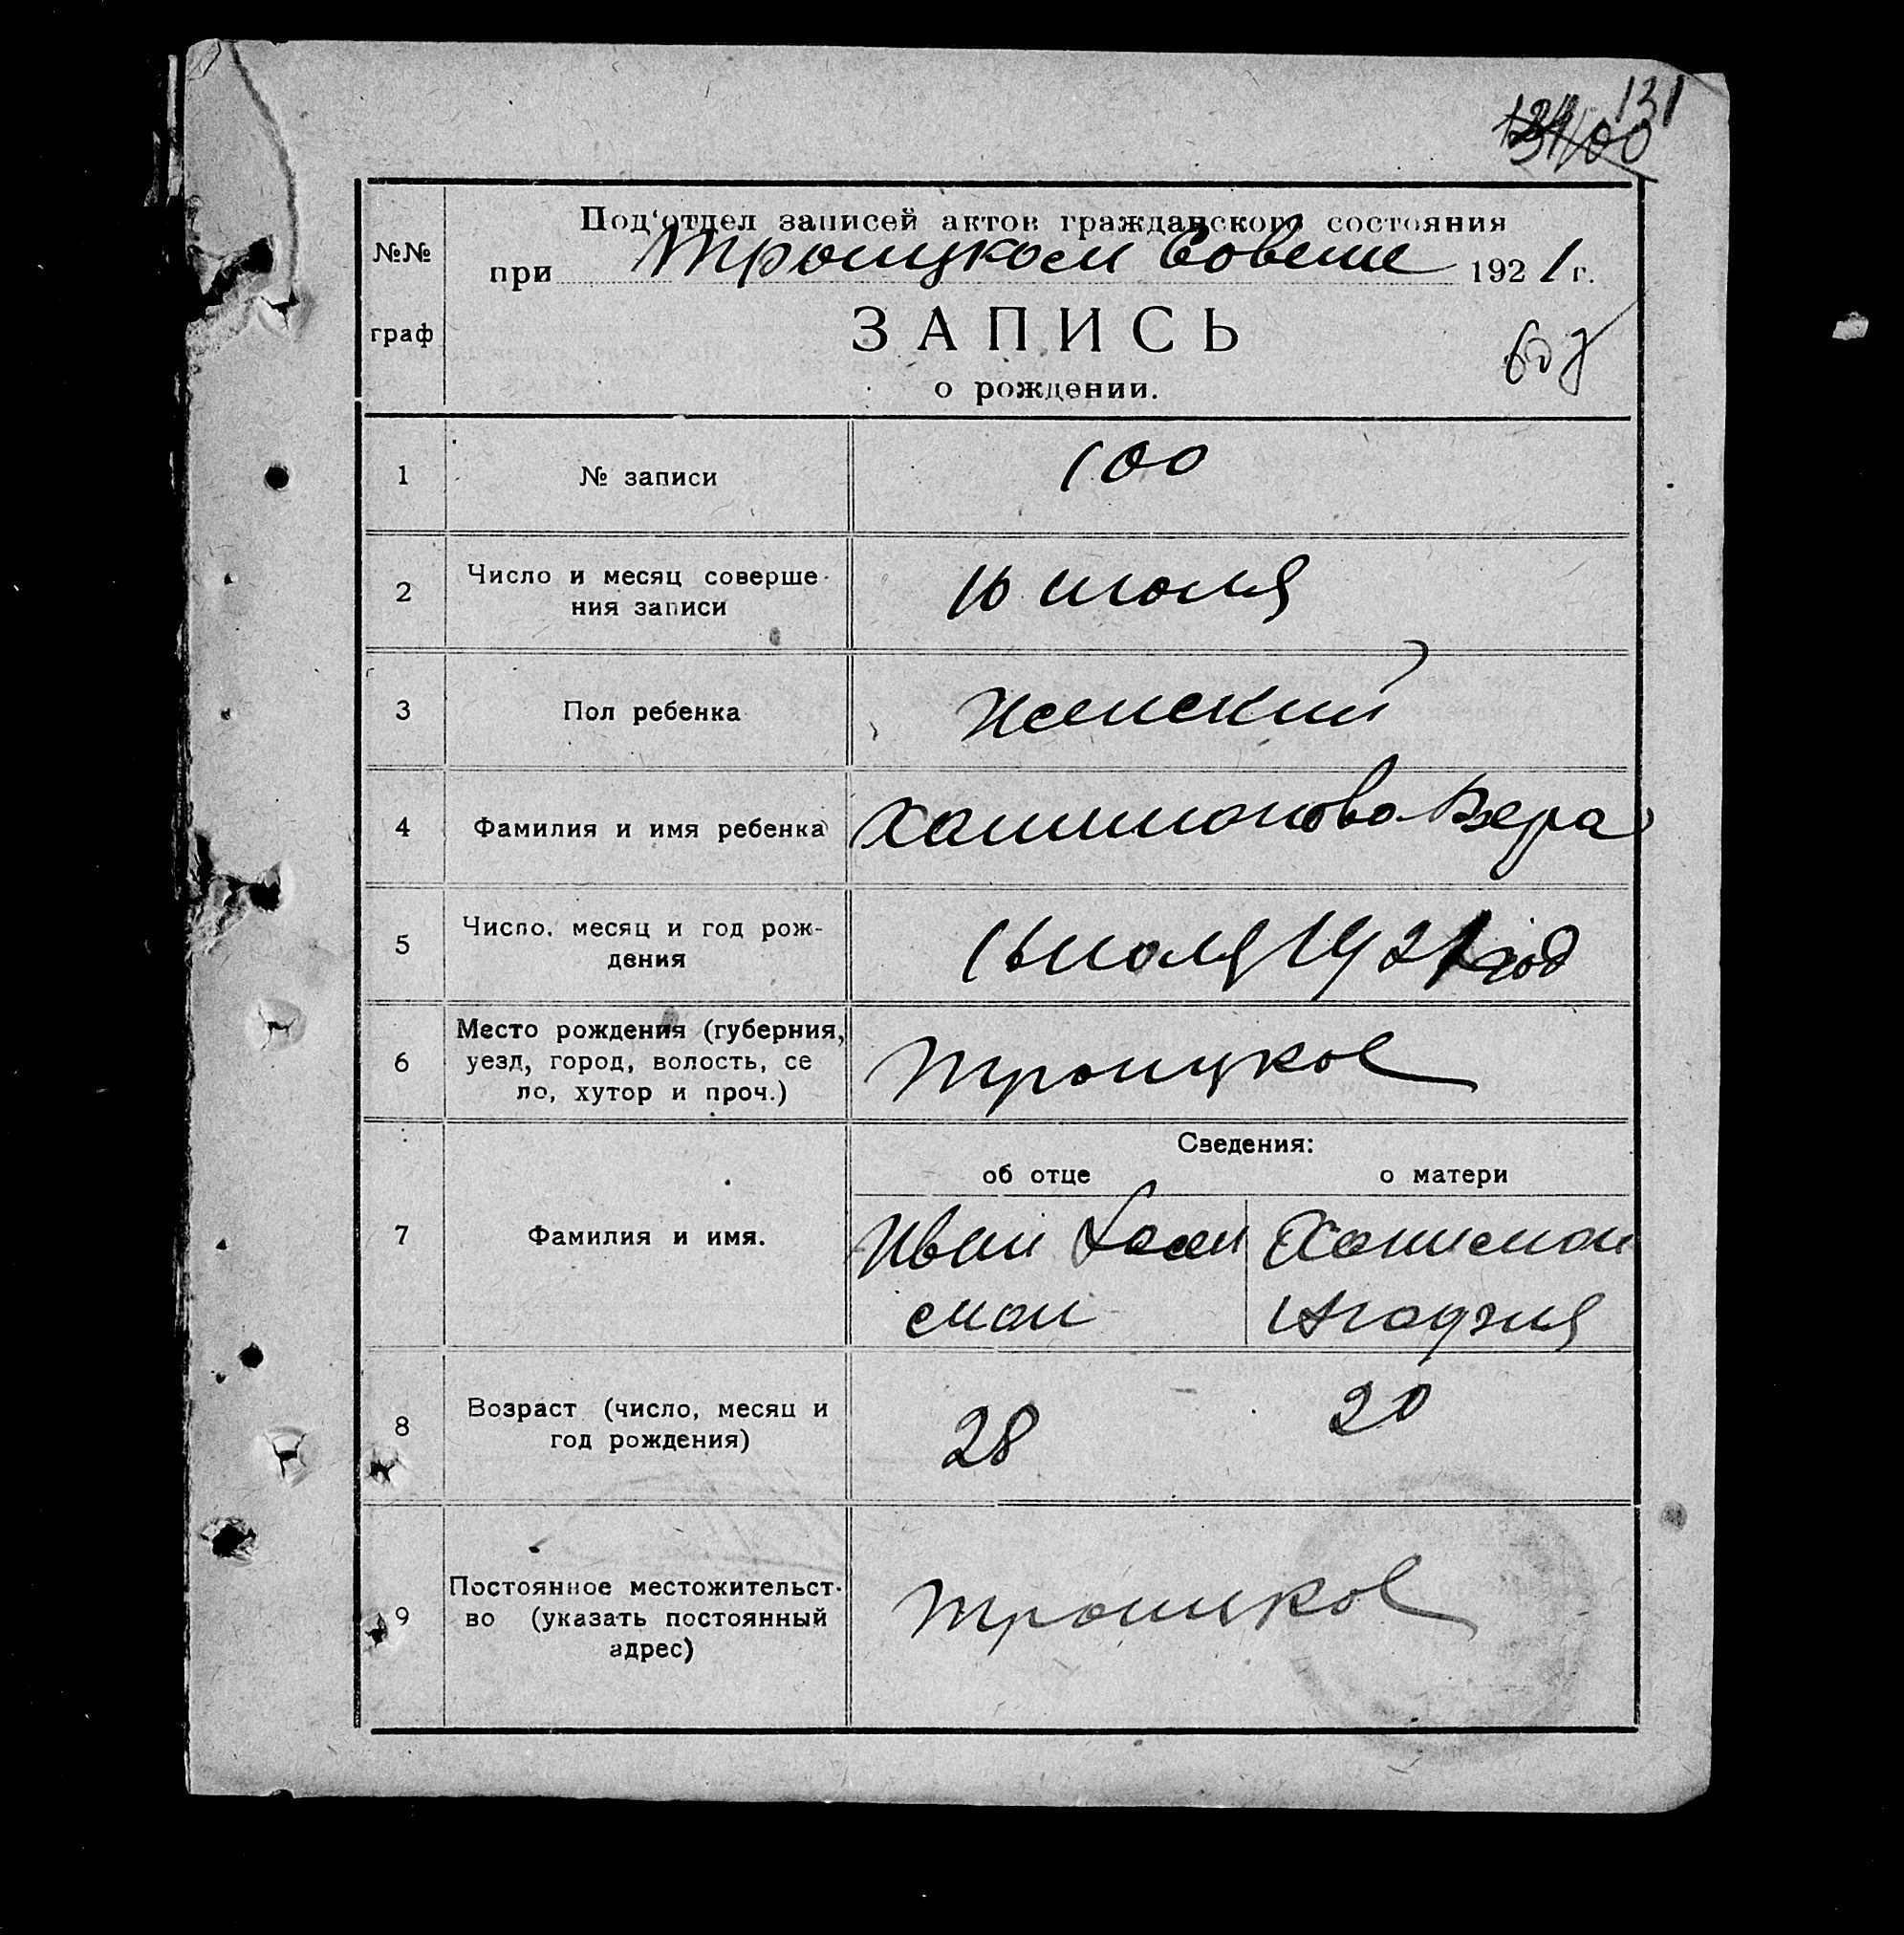 131
Под‘отдел записей актов гражданского состояния
при Троицком Совете 1921 г.
№№
граф
ЗАПИСЬ
о рождении.
1 № записи 100
2 Число и месяц соверше-
ния записи
16 июля
3 Пол ребенка Женский
4 Фамилия и имя ребенка Вера
5 Число, месяц и год рож-
дения
16 июля 1921 год
6 Место рождения (губерния,
уезд, город, волость, се
ло, хутор и проч.)
Троицкое
Сведения:
об отце о матери
7 Фамилия и имя.
Иван
8 Возраст (число, месяц и
год рождения)
28 20
9 Постоянное местожительст-
во (указать постоянный
адрес)
Троицкое